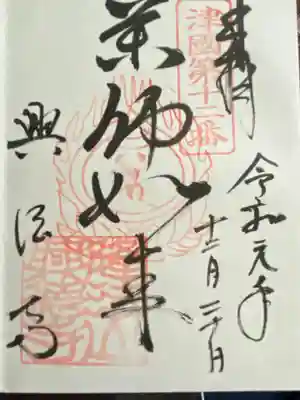 奉拝
令和元年
十二月二十日
津國第十三番
薬師如来
興法寺